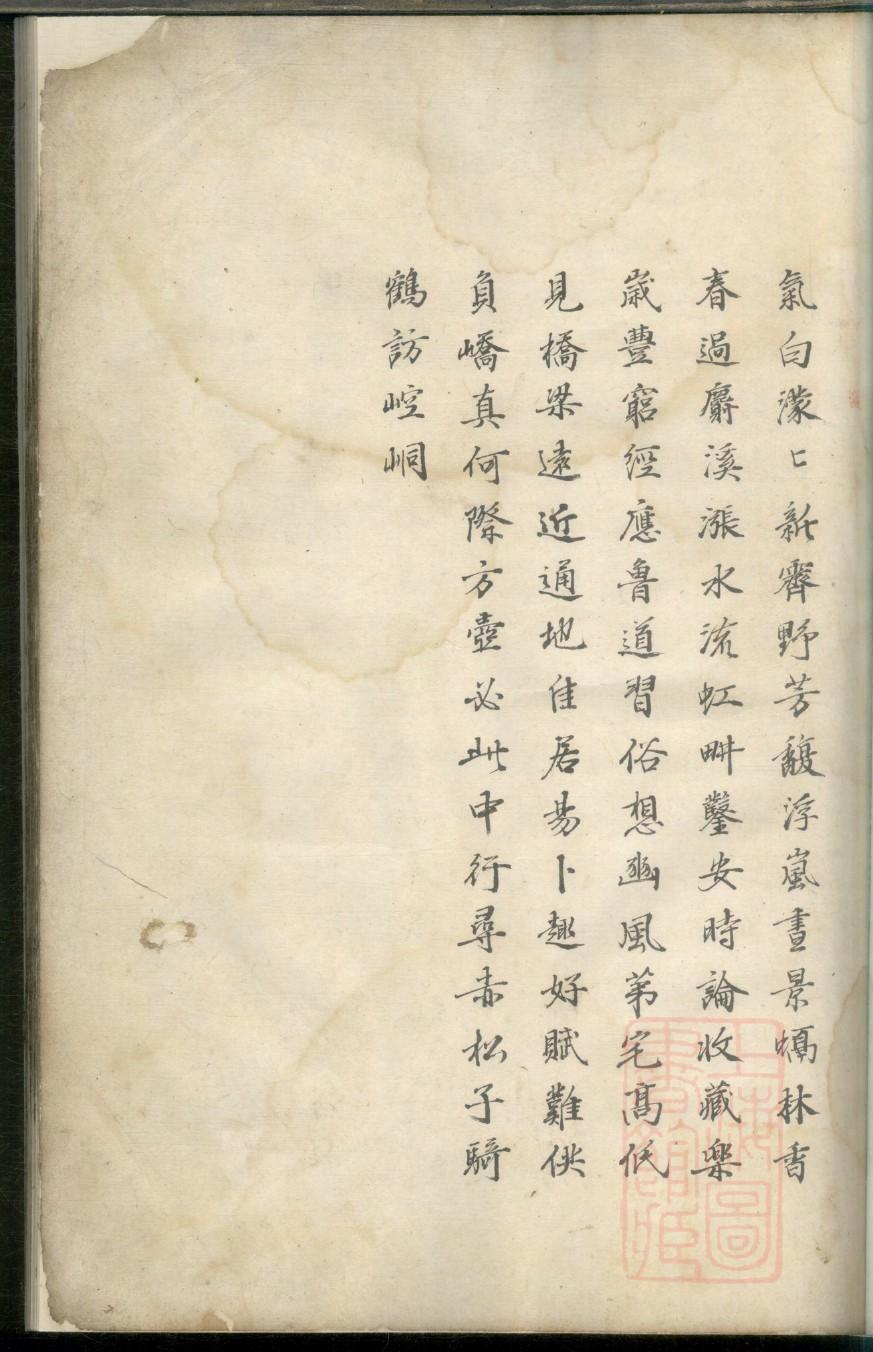 氣白濛〻新霽野芳馥浮嵐晝景蠲林香
春過麝溪漲水流虹畊鑿安時論收藏樂
歲豐窮經應魯道習俗想豳風第宅高低
見橋梁遠近通地佳居易卜趣好賦難供
負嶠真何際方壺必此中行尋赤松子騎
鶴訪崆峒